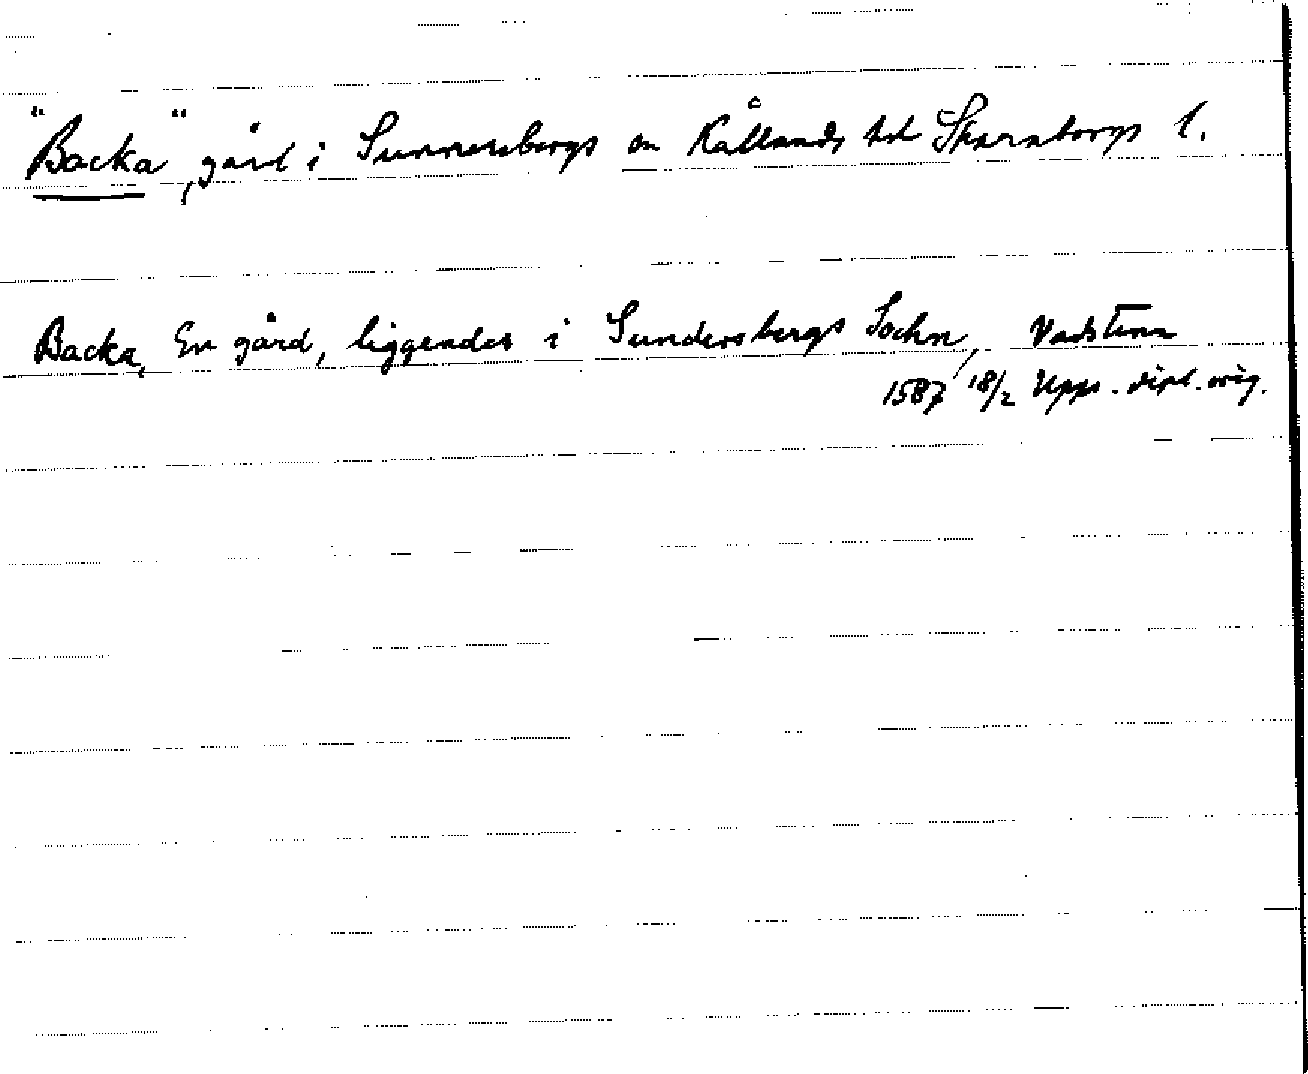 "Backa", gård i Sunnersbergs sn Kållands hd Skaraborgs l.
Backa, En gård, liggendes i Sundersbergs Sochn, Vadstena
1587 18/2 Upps. dipl. orig.